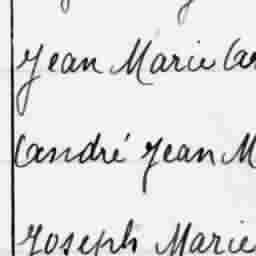 Jean Marie Car
Candré Jean M
Joseph Marie